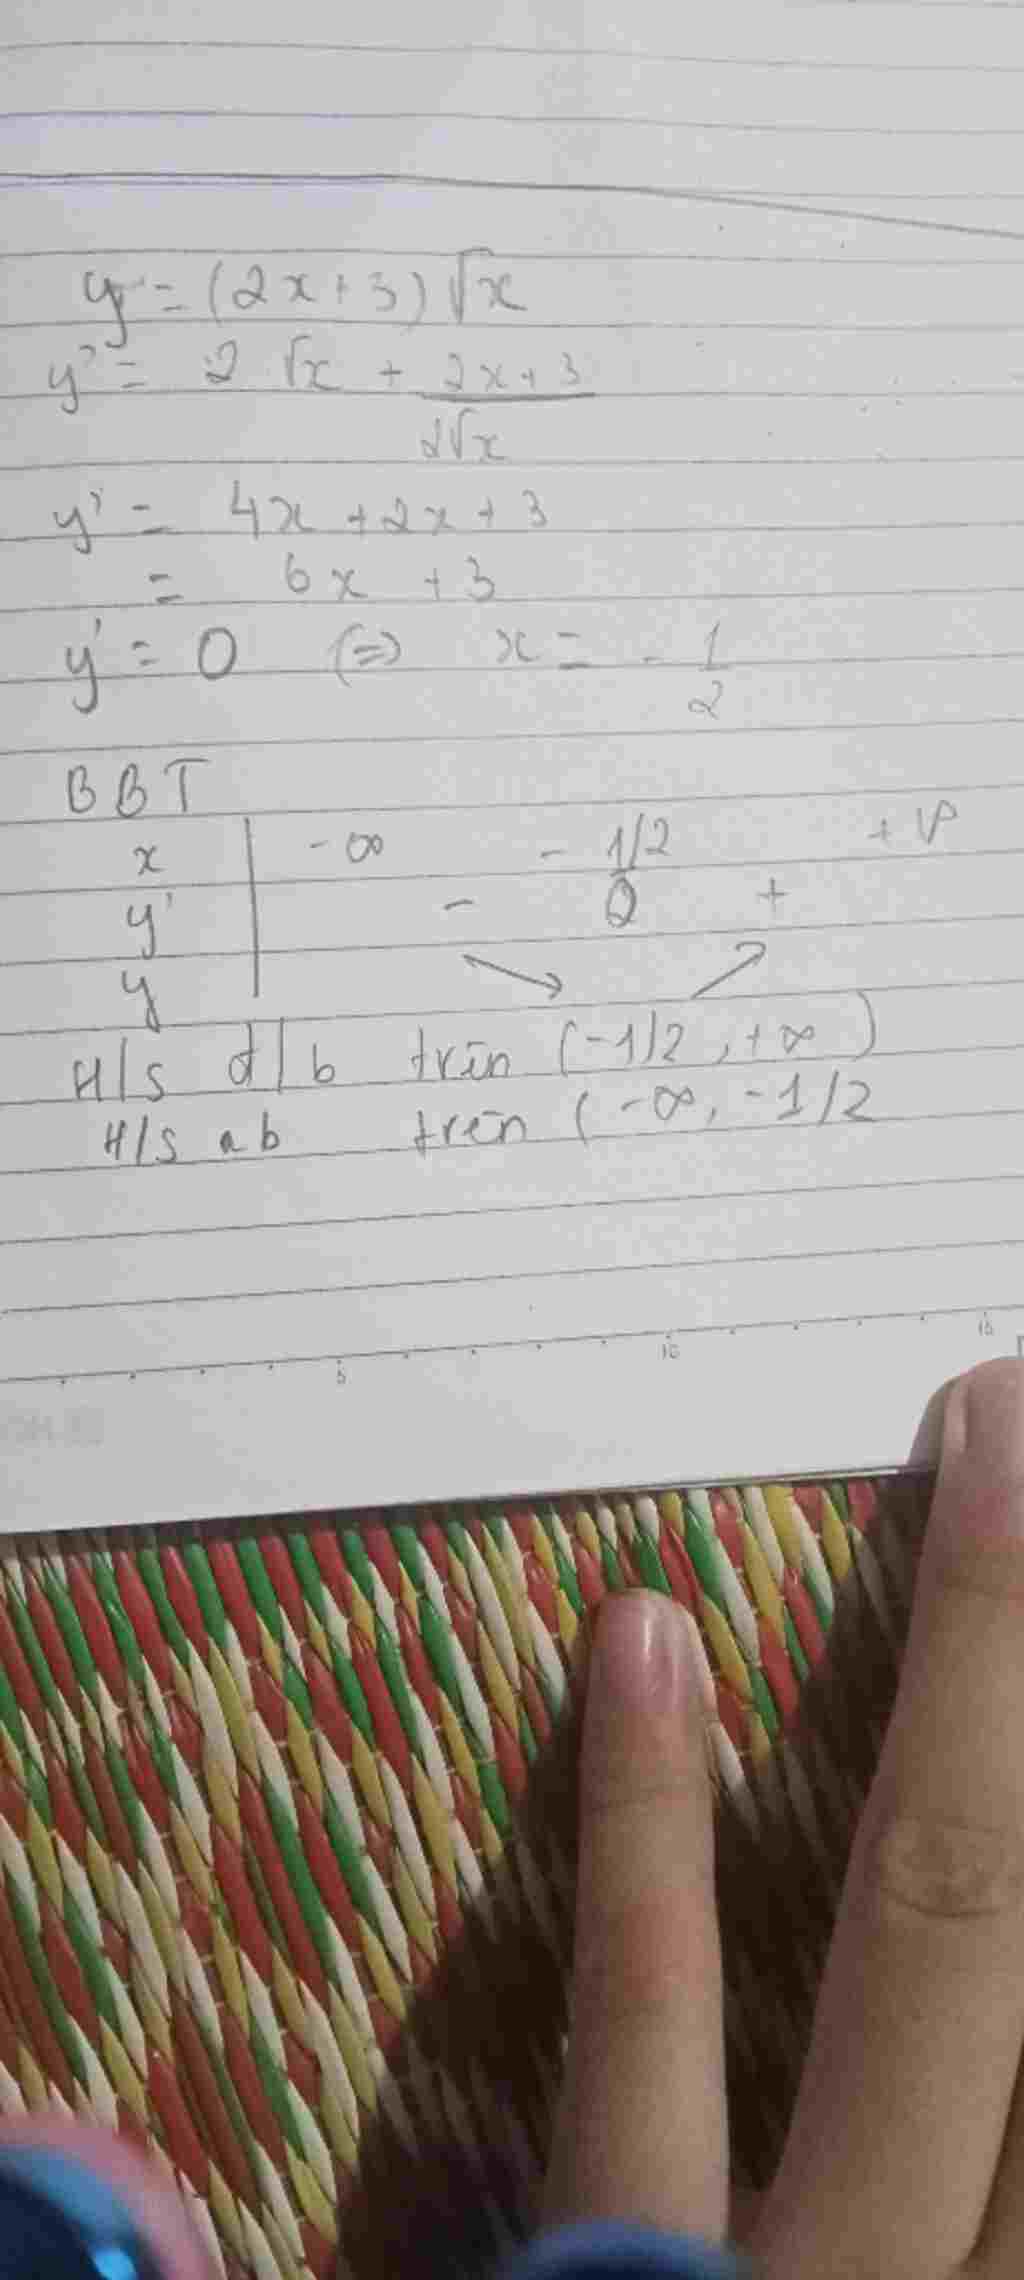 y = (2x + 3) √x
y' = 2 √x + (2x + 3) / (2√x)
y' = 4x + 2x + 3
= 6x + 3
y' = 0 (=> x = - 1/2
BBT
x | -∞ - 1/2 + ∞
y' | - 0 +
y | ↘ ↗
H/S đ/b trên (-1/2, +∞)
H/S nb trên (-∞, -1/2
5 10 15